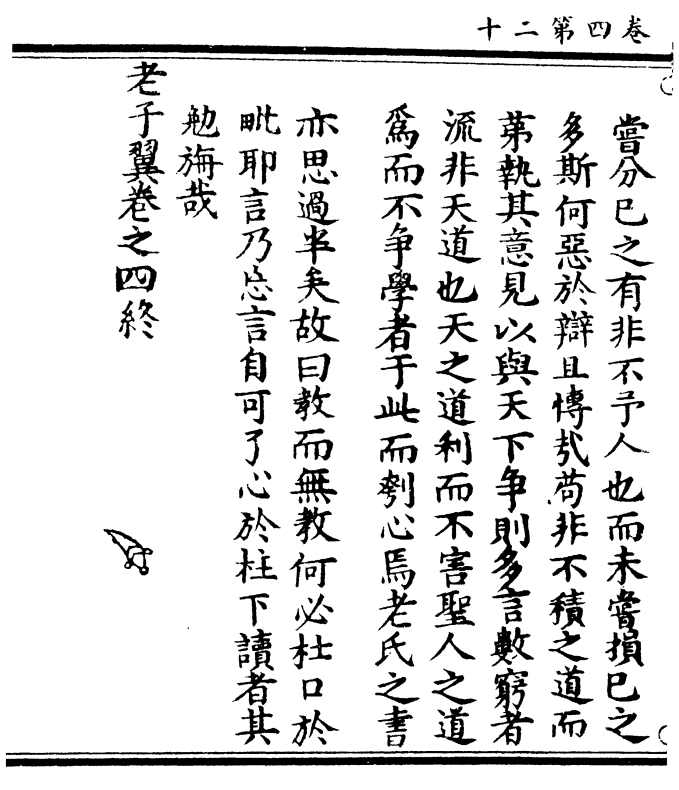 卷四第二十
嘗分已之有非不予人也而未嘗損已之
多斯何惡於辯且慱㢤苟非不積之道而
苐執其意見以與天下争則多言數窮者
流非天道也天之道利而不害聖人之道
爲而不争學者于此而刳心焉老氏之書
亦思過半矣故曰教而無教何必杜口於
毗耶言乃忘言自可了心於柱下讀者其
勉旃哉
老子翼卷之四終